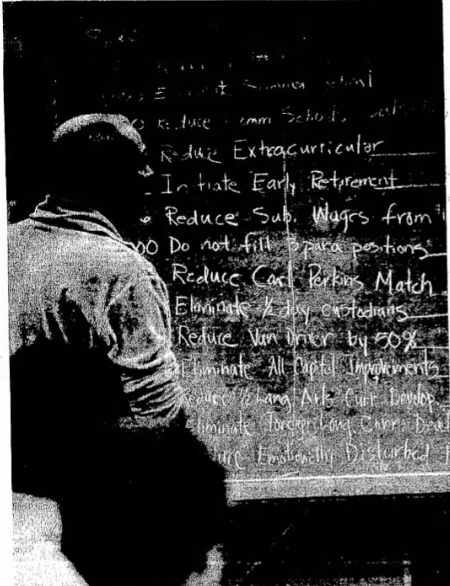 Summer School
Reduce Comm Schools
Reduce Extracurricular
Initiate Early Retirement
Reduce Sub. Wages from
Do not fill 3 para positions
Reduce Carl Perkins Match
Eliminate ½ day custodians
Reduce Van Driver by 50%
Eliminate All Captl Improvements
Reduce ½ Lang Arts Curr Develop
Eliminate Foreign Lang Curr. Devel
Emotionally Disturbed